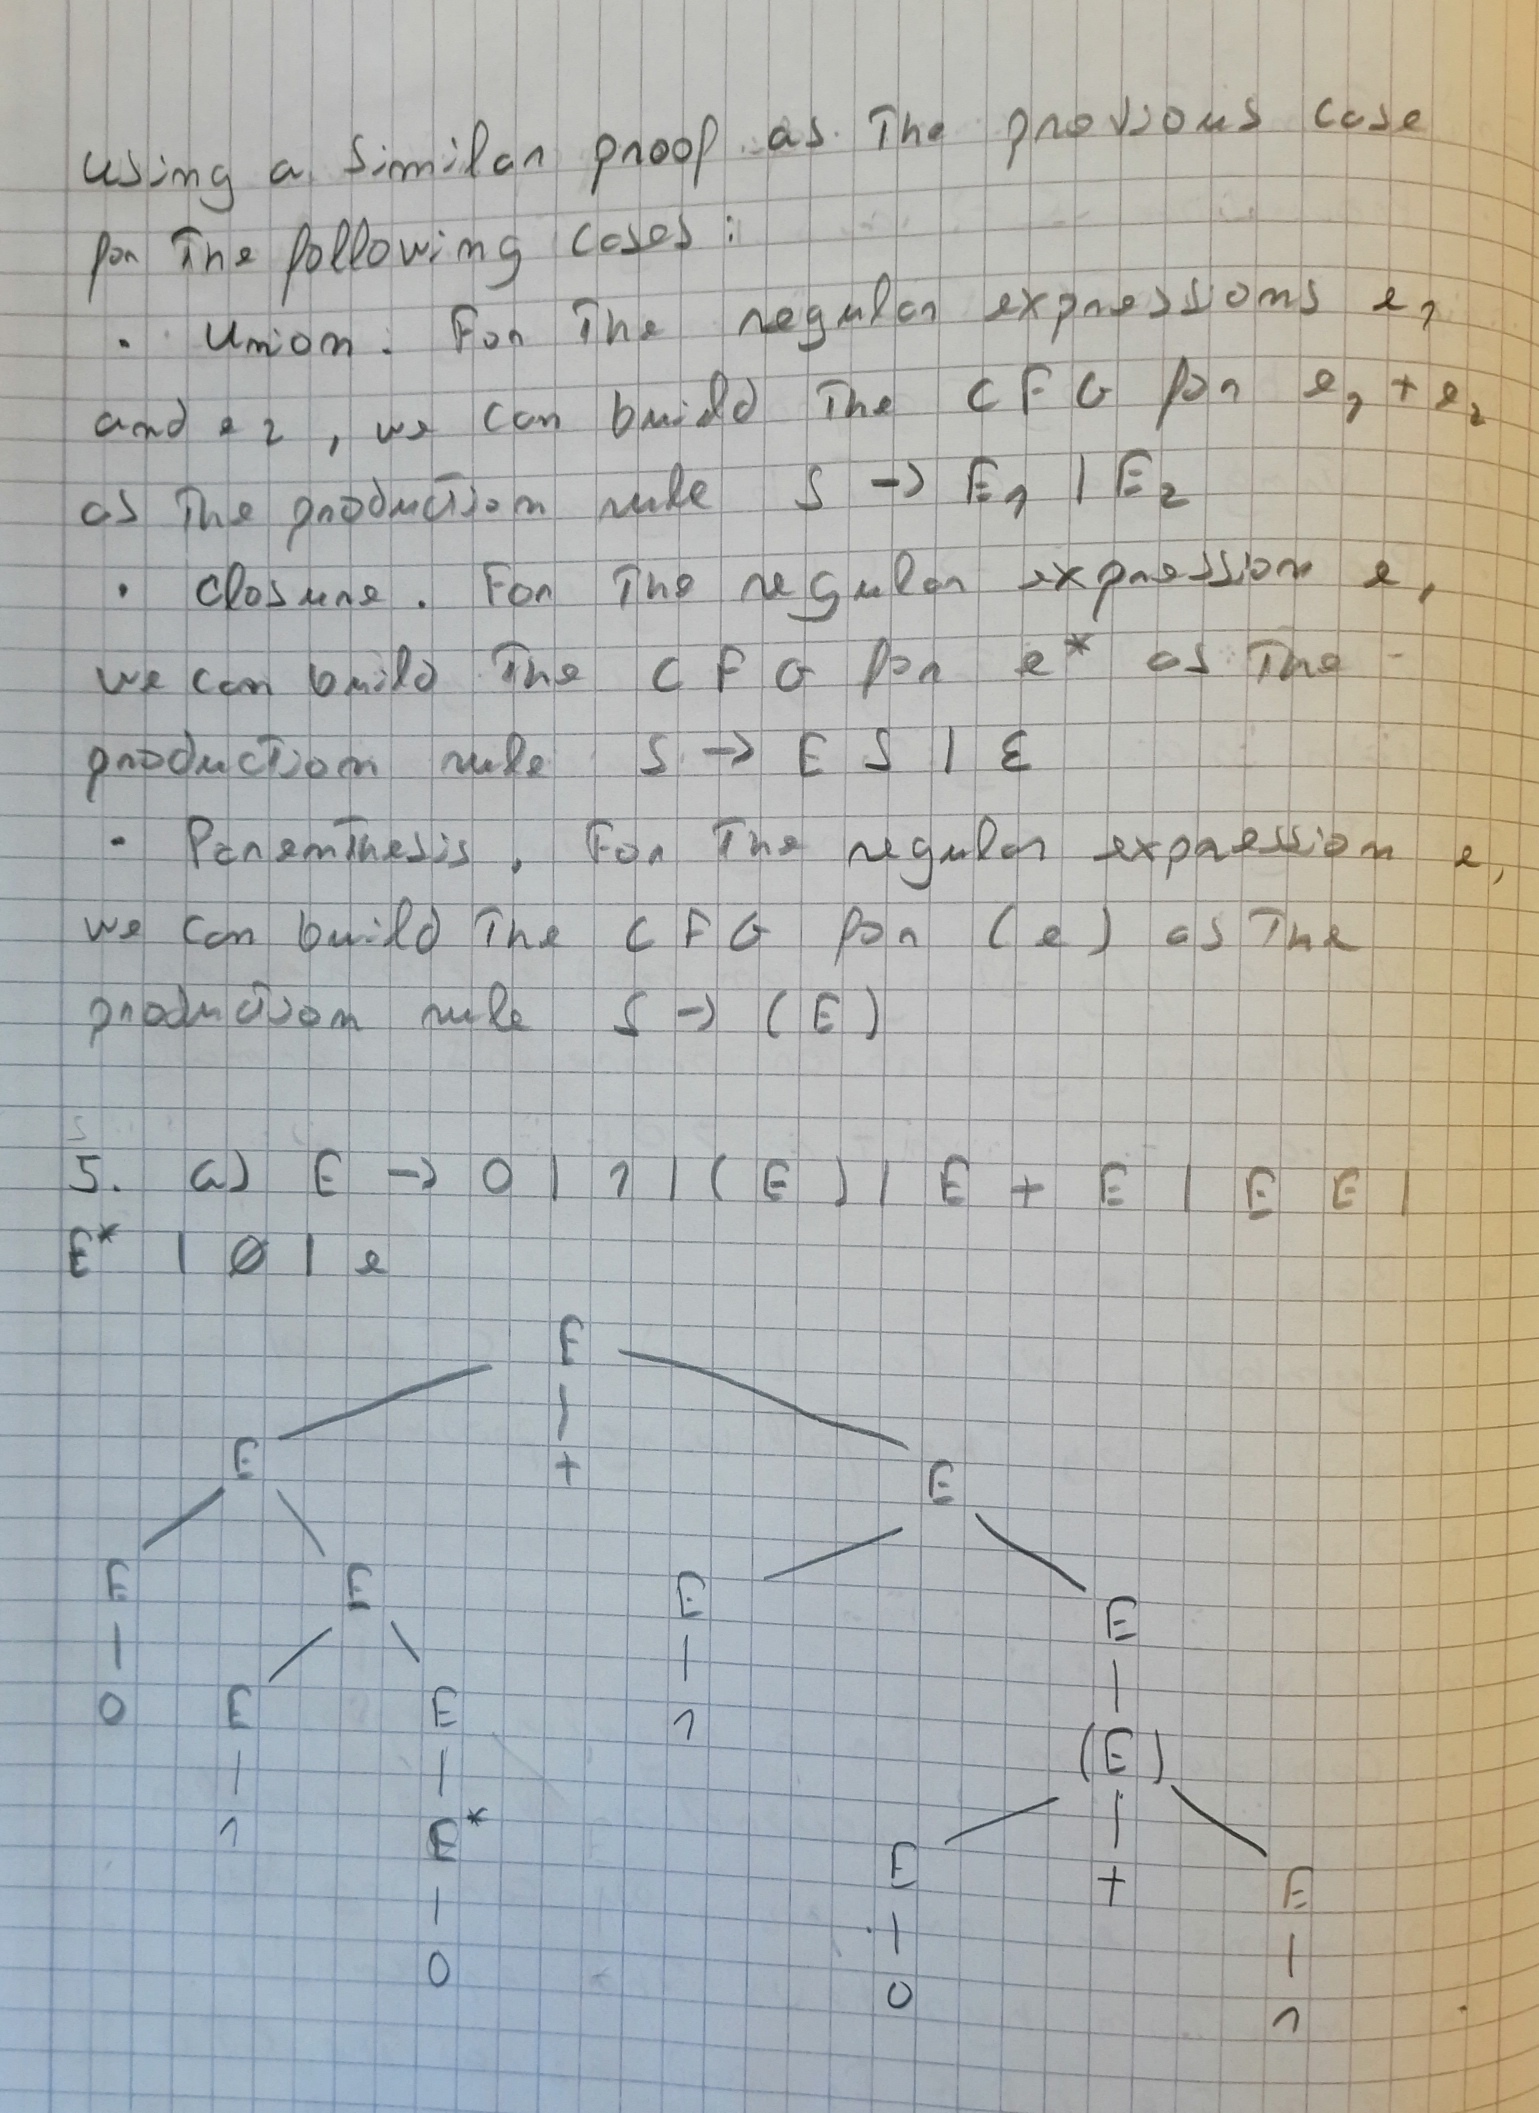 Using a similar proof as the previous case
for the following cases:
· Union. For the regular expressions e₁
and e₂, we can build the CFG for e₁ + e₂
as the production rule S → E₁ | E₂
· Closure. For the regular expression e,
we can build the CFG for e* as the
production rule S → E S | ε
· Parenthesis. For the regular expression e,
we can build the CFG for (e) as the
production rule S → (E)
5. a) E → 0 | 1 | (E) | E + E | E E |
E* | ∅ | e
E
E + E
E E E E
0 E E 1 (E)
1 E* E + E
0 0 1